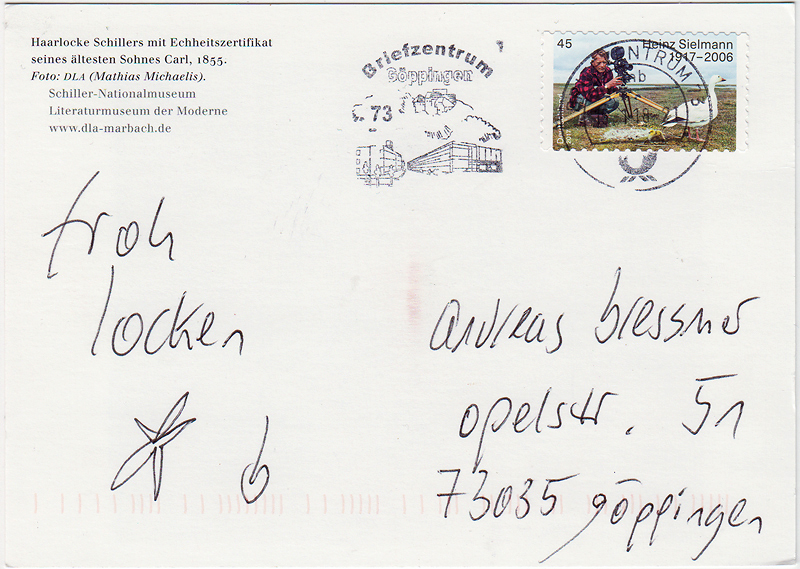 Haarlocke Schillers mit Echheitszertifikat
seines ältesten Sohnes Carl, 1855.
Foto: DLA (Mathias Michaelis).
Schiller-Nationalmuseum
Literaturmuseum der Moderne
www.dla-marbach.de
Briefzentrum
Göppingen
73
45 Heinz Sielmann
1917–2006
froh
locken
b
andreas bressmer
opelstr. 51
73035 göppingen